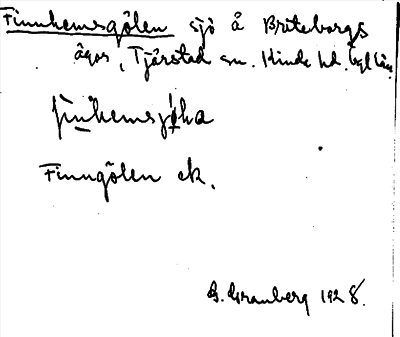 Finnhemsgölen sjö å Briteborgs
ägor, Tjärstad sn. Kinda hd. Ögl län
Finngölen ek.
G. Granberg 1928.